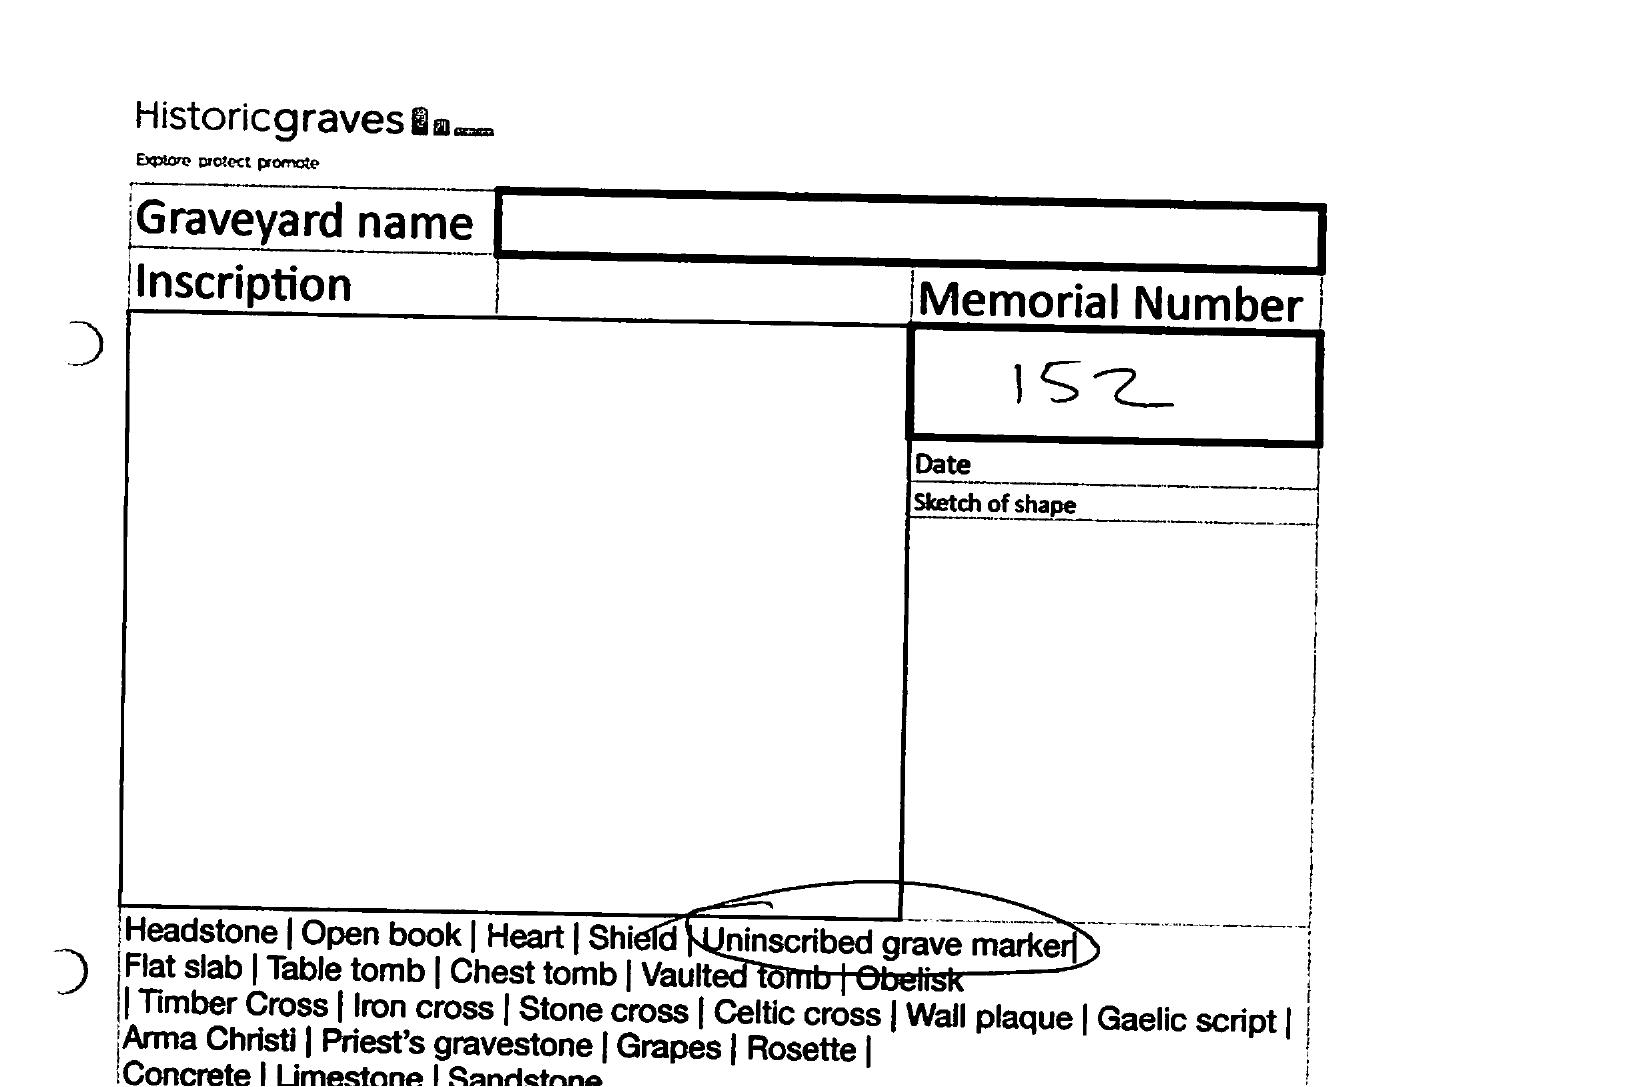 Historicgraves
Explore protect promote
Graveyard name
Inscription
Memorial Number
152
Date
Sketch of shape
Headstone | Open book | Heart | Shield | Uninscribed grave marker|
Flat slab | Table tomb | Chest tomb | Vaulted tomb | Obelisk
| Timber Cross | Iron cross | Stone cross | Celtic cross | Wall plaque | Gaelic script |
Arma Christi | Priest's gravestone | Grapes | Rosette |
Concrete | Limestone | Sandstone